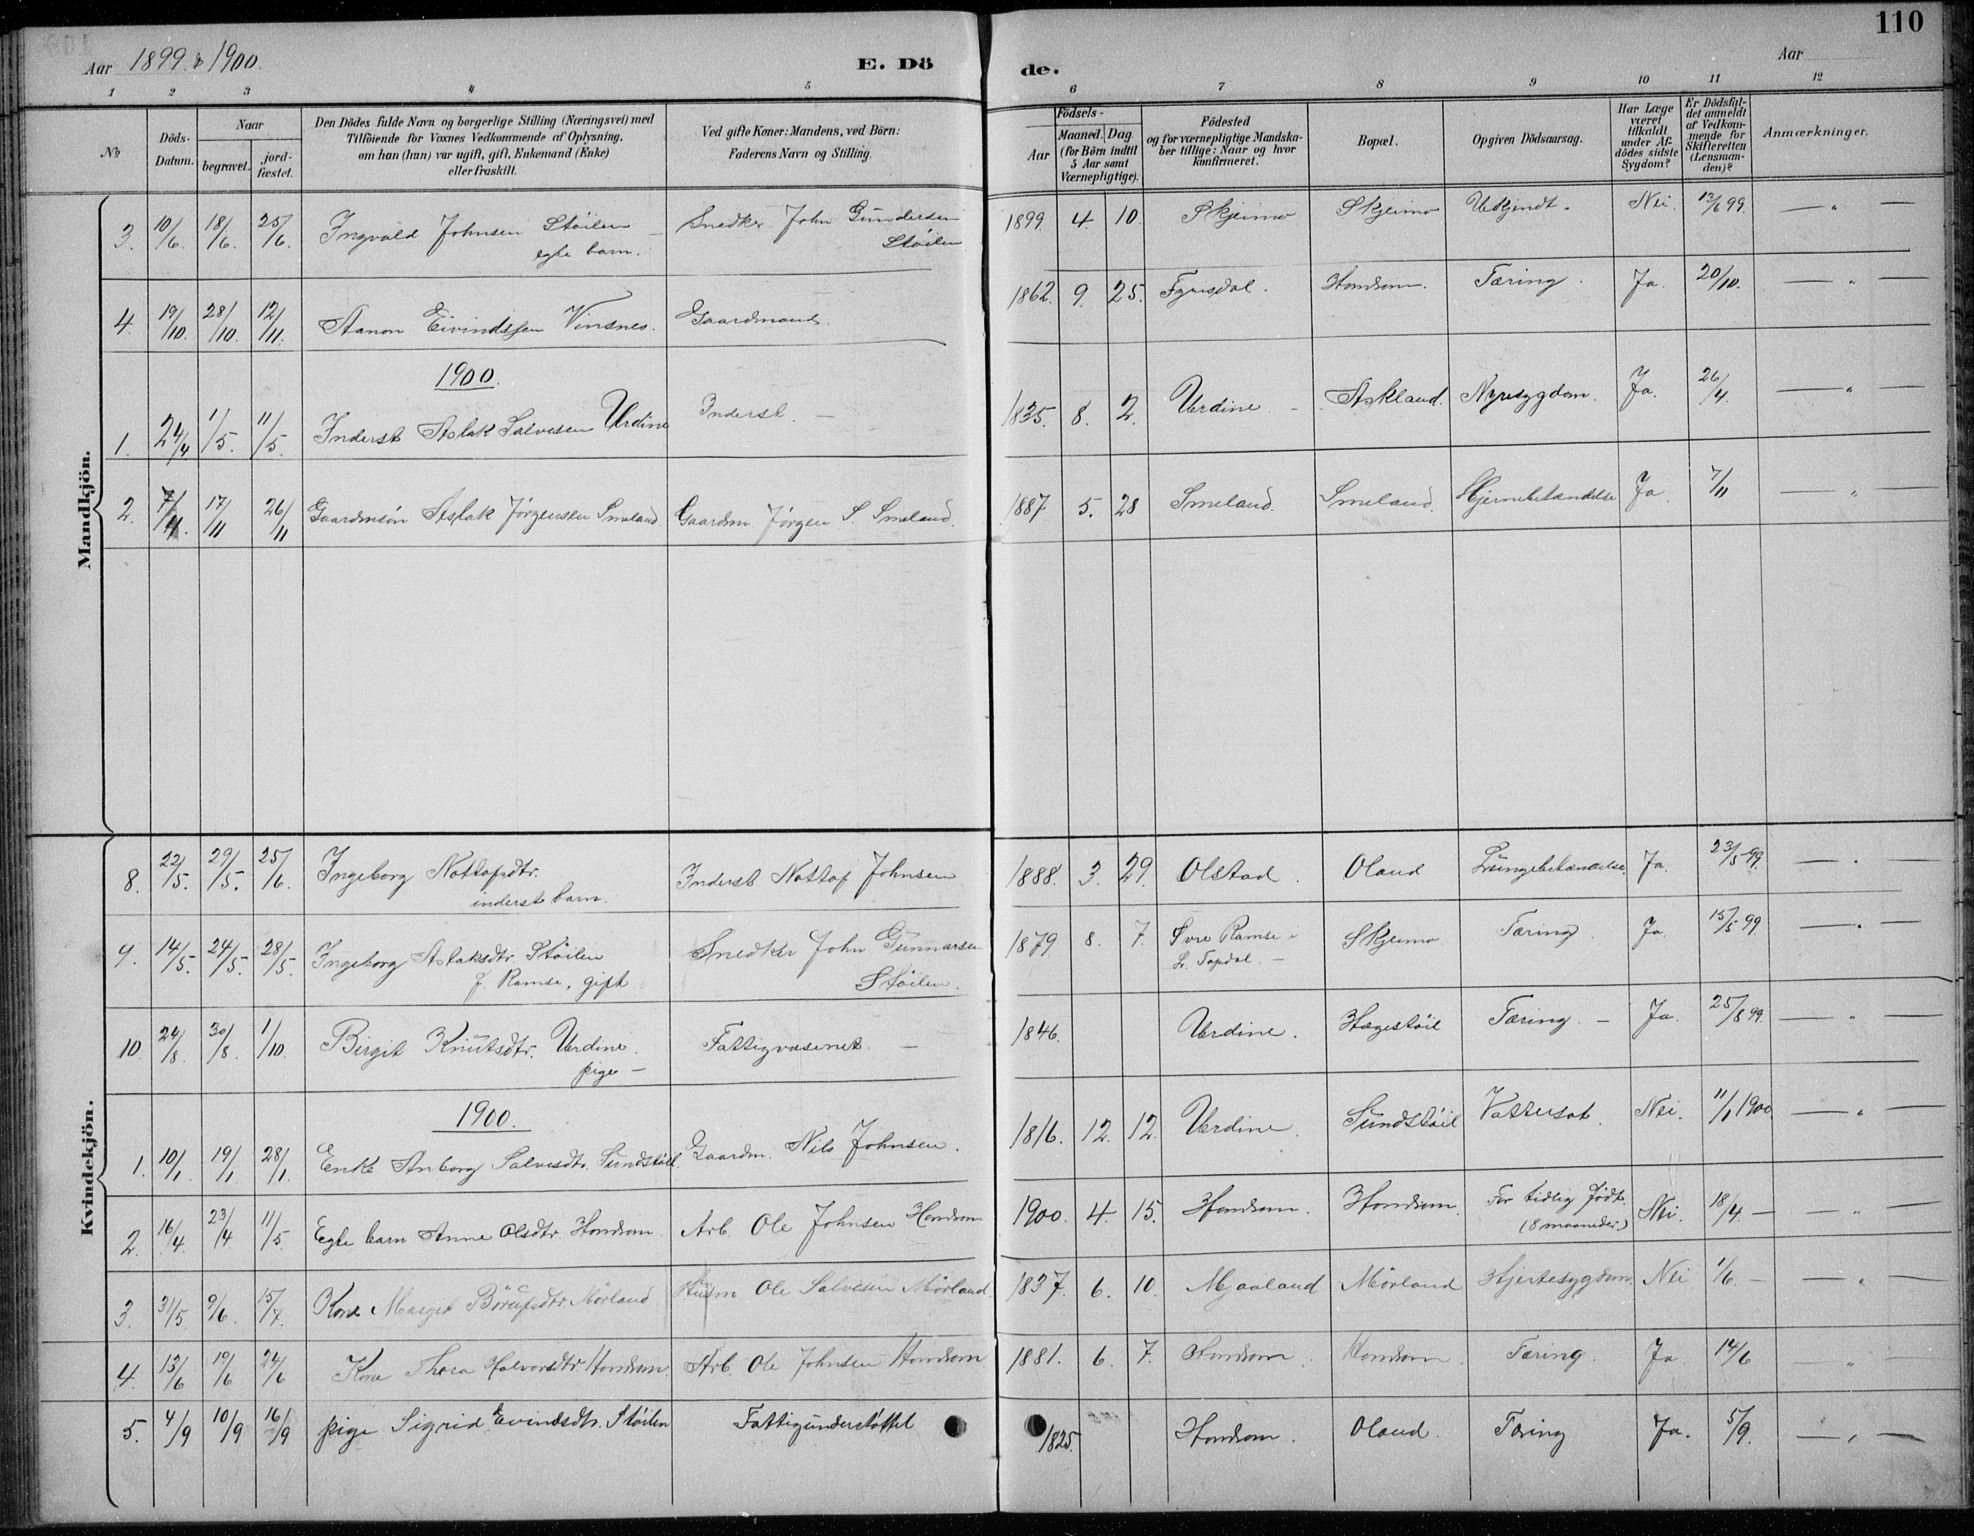 110
Aar 1899 & 1900.
E. Dö de.
Aar
1 2 3 4 5 6 7 8 9 10 11 12
No
Döds-Datum.
Naar
begravet.
jord-fæstet.
Den Dödes fulde Navn og borgerlige Stilling (Næringsvei) med
Tilföiende for Voxnes Vedkommende af Oplysning,
om han (hun) var ugift, gift, Enkemand (Enke)
eller fraskilt.
Ved gifte Koner: Mandens, ved Börn:
Faderens Navn og Stilling.
Födsels-
Aar
Maaned. Dag.
(for Börn indtil
5 Aar samt
Værnepligtige).
Födested
og for værnepligtige Mandska-
ber tillige: Naar og hvor
konfirmeret.
Bopæl.
Opgiven Dödsaarsag.
Har Læge
været
tilkaldt
under Af-
dödes sidste
Sygdom?
Er Dödsfal-
det anmeldt
af Vedkom-
mende for
Skifteretten
(Lensman-
den)?
Anmærkninger.
Mandkjön.
3. 10/6. 18/6. 25/6. Ingvald Johnsen Støilen – Snedker John Gundersen 1899 4. 10. Skjeimo Skjeimo Ukjendt. Nei 13/6 99. — " —
egte barn. Støilen
4. 19/10. 28/10. 12/11. Aanon Eivindssen Vinsnes. Gaardmand. 1862. 9. 25. Fyrisdal. Homdrom. Tæring. Ja. 20/10. — " —
1900.
1. 24/4 1/5. 11/5. Inderst Aslak Salvesen Urdine Inderst – 1835. 8. 2. Urdine. – Askland. Nyresygdom. Ja. 26/4. — " —
2. 7/11. 17/11 26/11 Gaardmsøn Aslak Jørgensen Smeland Gaardm Jørgen S. Smeland. 1887 5. 28 Smeland. Smeland. Hjernebetændelse Ja. 7/11 — " —
Kvindekjön.
8. 22/5. 29/5. 25/6. Ingeborg Nottofsdtr. Inderst Nottof Johnsen 1888. 3. 29. Olstad. Oland Lungebetændelse. Ja. 23/5 99. — "
inderste barn.
9. 14/5. 24/5. 28/5. Ingeborg Aslaksdtr. Støilen Snedker John Gunnarsen 1879 8. 7. Øvre Ramse Skjeimo. Tæring Ja. 15/5 99 — " —
f. Ramse, gift Støilen. Tr. Topdal. –
10. 24/8. 30/8. 1/10. Birgit Knutsdtr. Urdine. Fattigvæsenet. – 1846. Urdine. Hægestøil Tæring. – Ja. 25/8 99. — " —
pige –
1900.
1. 10/1 19/1 28/1 Enke Anborg Salvesdtr. Sundstøil Gaardm. Nils Johnsen. 1816. 12. 12. Urdine. Sundstøil Vattersot. Nei. 11/1 1900 — " —
2. 16/4. 23/4 11/5. Egte barn Anne Olsdtr. Homdrom. Arb. Ole Johnsen Homdrom 1900. 4. 15. Homdrom. Homdrom. For tidlig født Nei. 18/4. — " —
(8 maaneder)
3. 31/5. 9/6. 15/7. Kone Marget Børufsdtr. Mørland Husm Ole Salvesen Mørland. 1837. 6. 10. Mjaaland Mørland Hjertesygdom Nei 1/6. — " —
4. 13/6 19/6 24/6 Kone Thora Halvorsdtr. Homdrom. Arb. Ole Johnsen Homdrom 1881. 6. 7. Homdrom Homdrom Tæring. Ja. 14/6 "
5. 4/9 10/9 16/9 pige Sigrid Eivindsdtr. Støilen Fattigunderstøttet 1825. Homdrom. Oland. Tæring Ja. 5/9. — " —